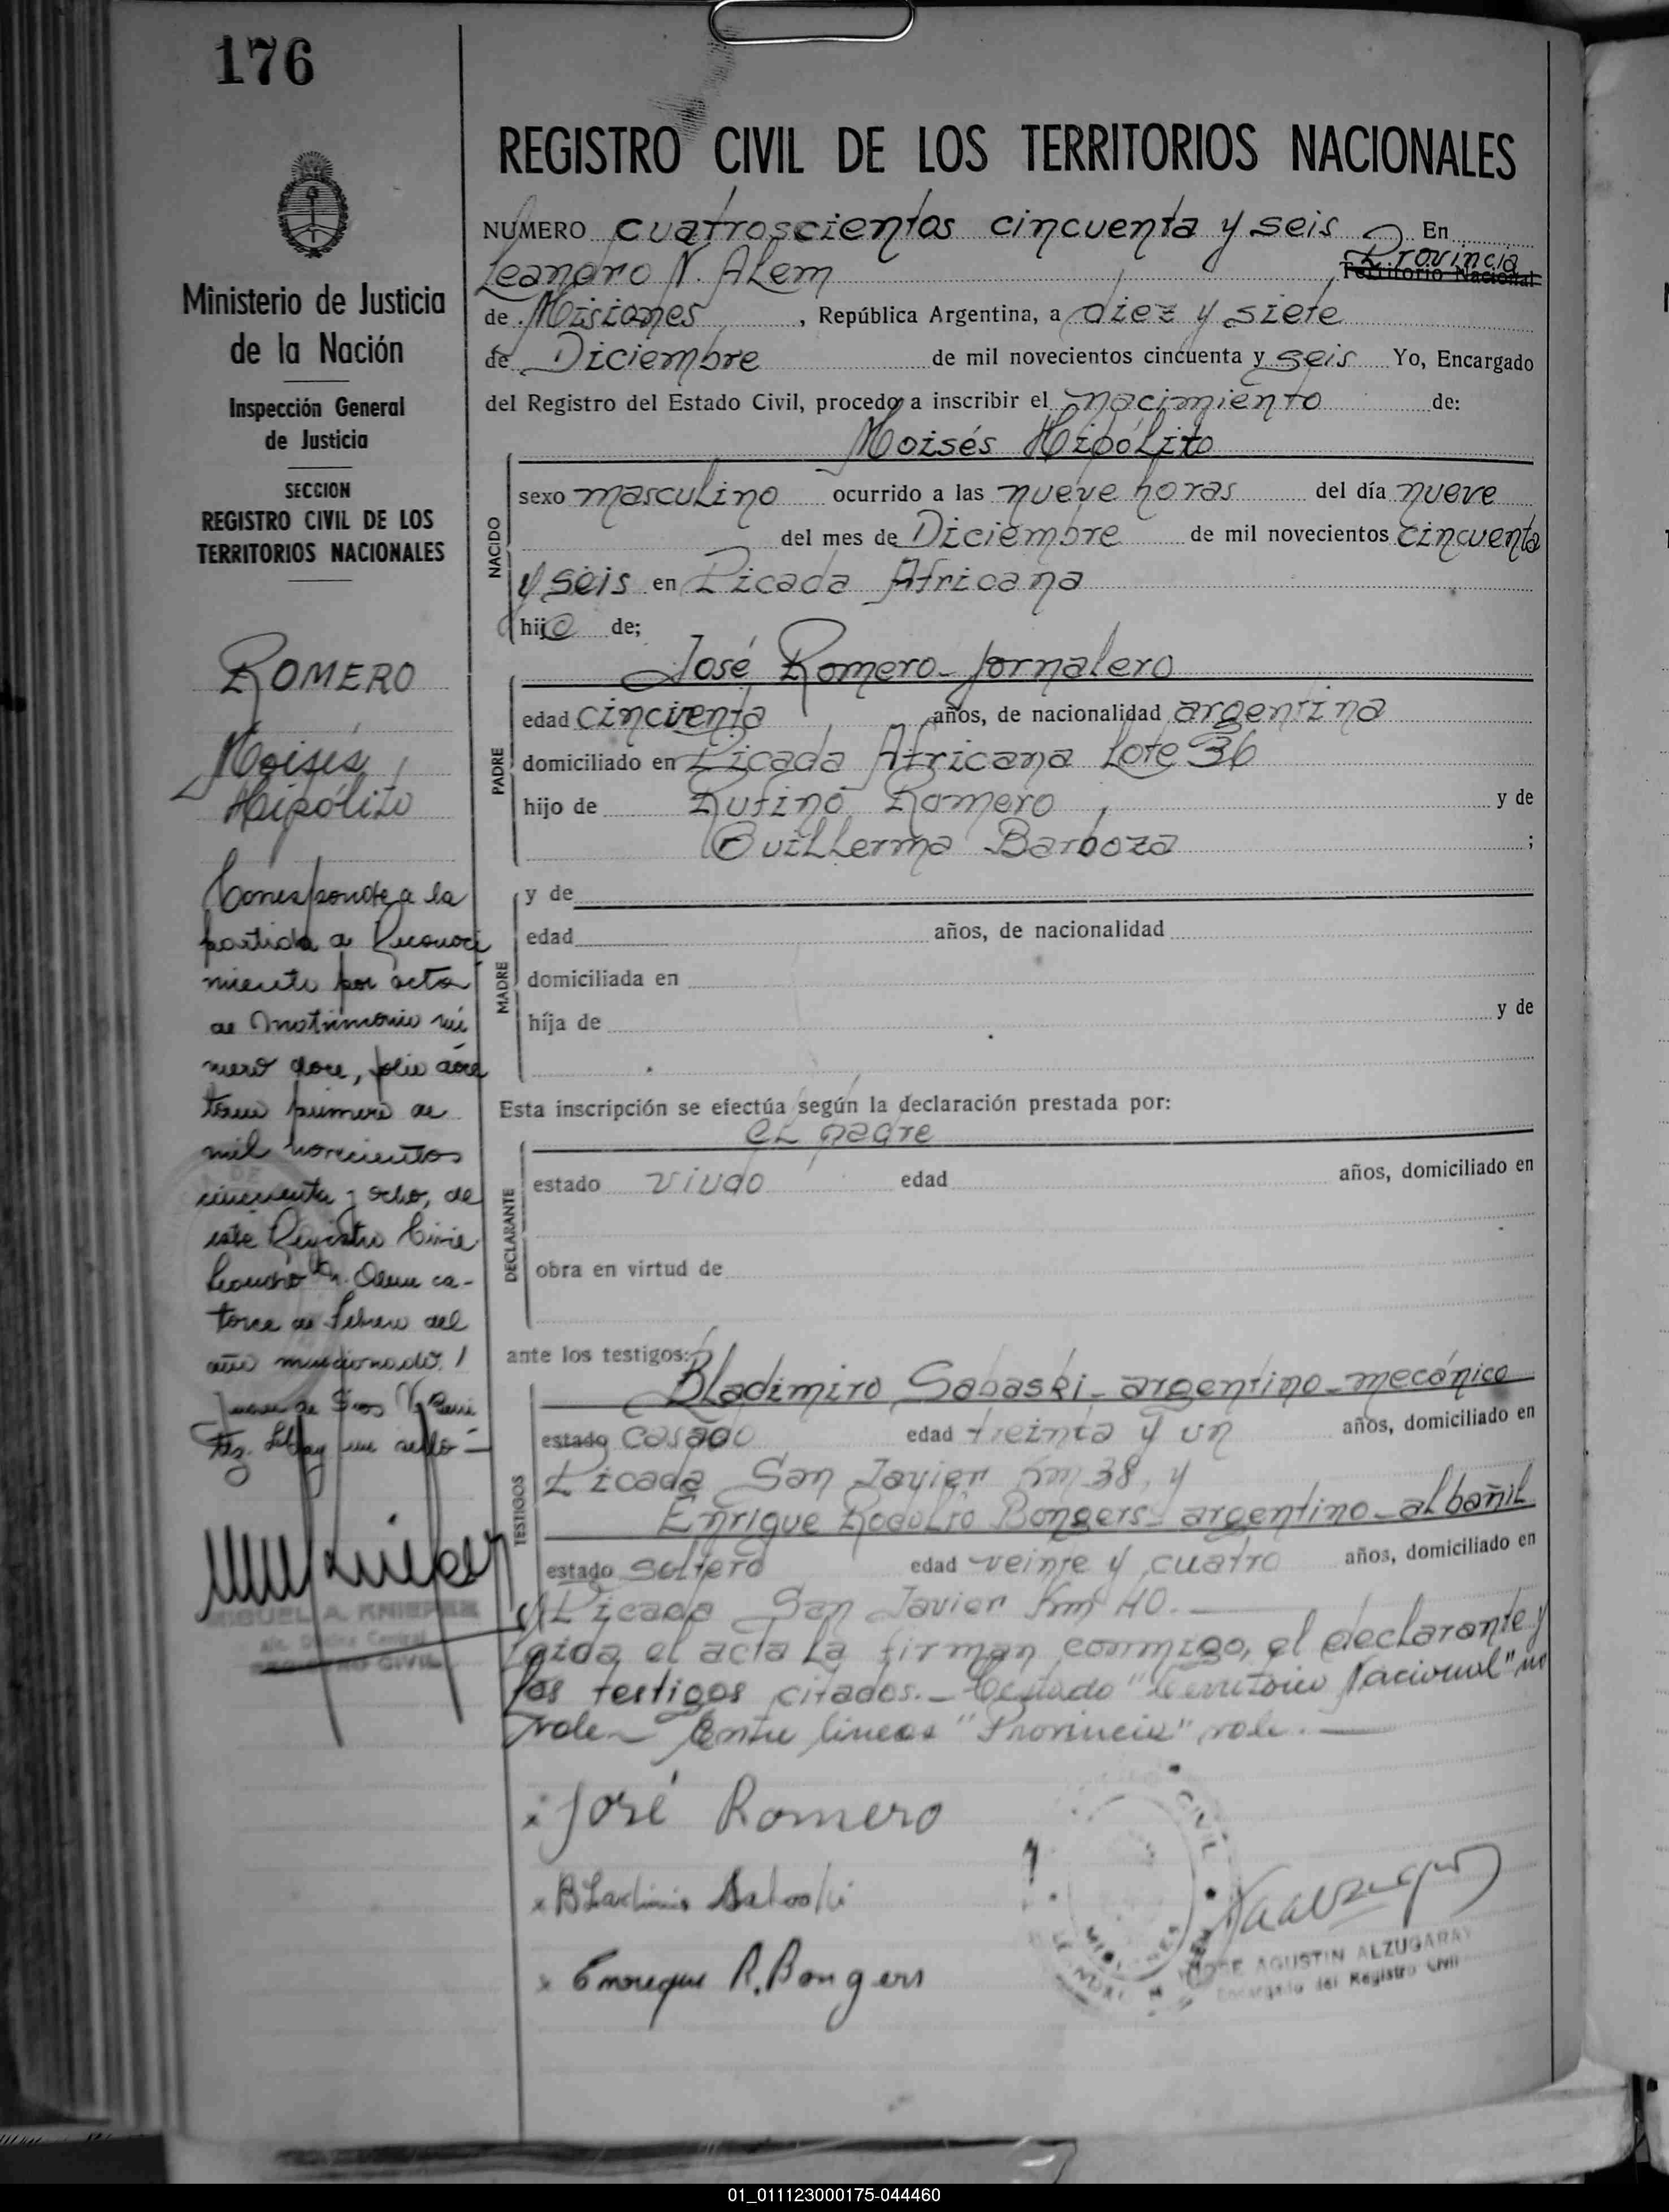 176
REGISTRO CIVIL DE LOS TERRITORIOS NACIONALES
Ministerio de Justicia
de la Nación
Inspección General
de Justicia
SECCION
REGISTRO CIVIL DE LOS
TERRITORIOS NACIONALES
ROMERO
Moisés
Hipólito
Corresponde a la
partida a Reconoci
miento por acta
de Matrimonio nú
mero doce, folio doce
tomo primero de
mil novecientos
cincuenta y ocho, de
este Registro Civil
Leandro N. Alem ca-
torce de Febrero del
año mencionado.
Juan de Dios
Hay un sello
MIGUEL A. KNIEPER
Oficina Central
REGISTRO CIVIL
NUMERO cuatroscientos cincuenta y seis En
Leandro N. Alem Provincia Territorio Nacional
de Misiones, República Argentina, a diez y siete
de Diciembre de mil novecientos cincuenta y seis Yo, Encargado
del Registro del Estado Civil, procedo a inscribir el nacimiento de:
Moisés Hipólito
NACIDO
sexo masculino ocurrido a las nueve horas del día nueve
del mes de Diciembre de mil novecientos cincuenta
y seis en Picada Africana
hijo de;
José Romero - Jornalero
PADRE
edad cincuenta años, de nacionalidad argentina
domiciliado en Picada Africana Lote 36
hijo de Rufino Romero y de
Guillerma Barboza ;
MADRE
y de
edad años, de nacionalidad
domiciliada en
hija de y de
Esta inscripción se efectúa según la declaración prestada por:
el padre
DECLARANTE
estado viudo edad años, domiciliado en
obra en virtud de
ante los testigos:
TESTIGOS
Bladimiro Sabaski - argentino - mecánico
estado casado edad treinta y un años, domiciliado en
Picada San Javier Km 38, y
Enrique Rodolfo Bongers - argentino - albañil
estado soltero edad veinte y cuatro años, domiciliado en
Picada San Javier Km 40.-
Leida el acta la firman conmigo, el declarante y
los testigos citados.- Testado "Territorio Nacional" no
vale - Entre lineas "Provincia" vale.-
José Romero
Bladimiro Sabaski
Enrique R. Bongers
JOSE AGUSTIN ALZUGARAY
Encargado del Registro Civil
01_011123000175-044460